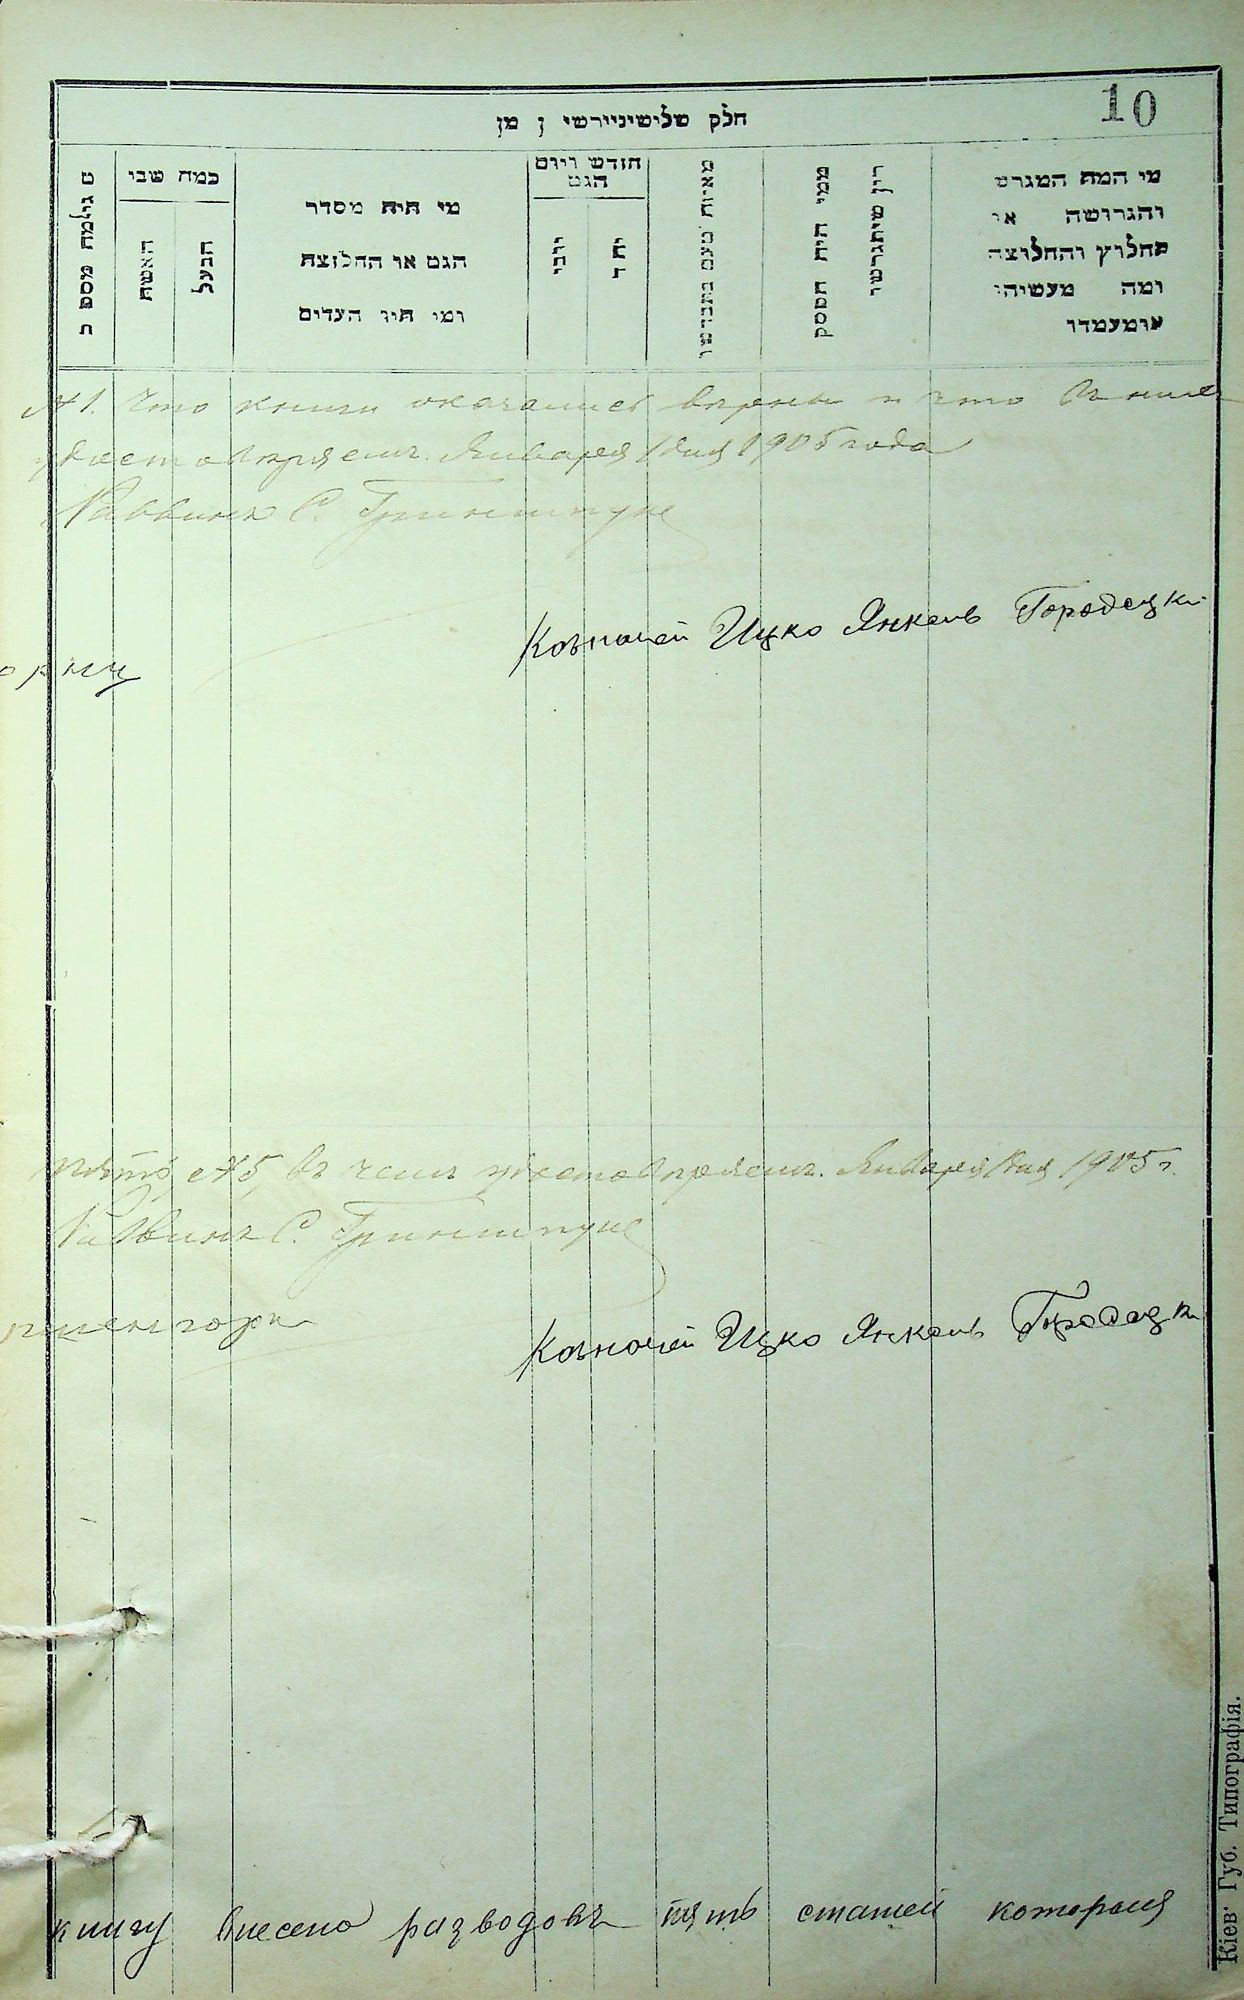 10
חלק שלישי
מי המה המגרש
והגרושה או
החלוץ והחלוצה
ומה מעשיהו
ומעמדו
ממי היה הפסק
דין שיתגרשו
חודש ויום
הגט
יהודי
מי היה מסדר
הגט או החליצה
ומי היו העדים
כמה שני
הבעל
האשה
№ 1. Что книги оказались верны и что въ ней
удостовѣряемъ. Января 1 дня 1905 года
Раввинъ С. Гриншпунъ
Казначей Ицко Янкель Городецкій
пять № 5, въ чемъ удостовѣряемъ. Января 1 дня 1905 г.
Раввинъ С. Гриншпунъ
Казначей Ицко Янкель Городецкій
книгу внесено разводовъ пять статей которыя
Кіев. Губ. Типографія.